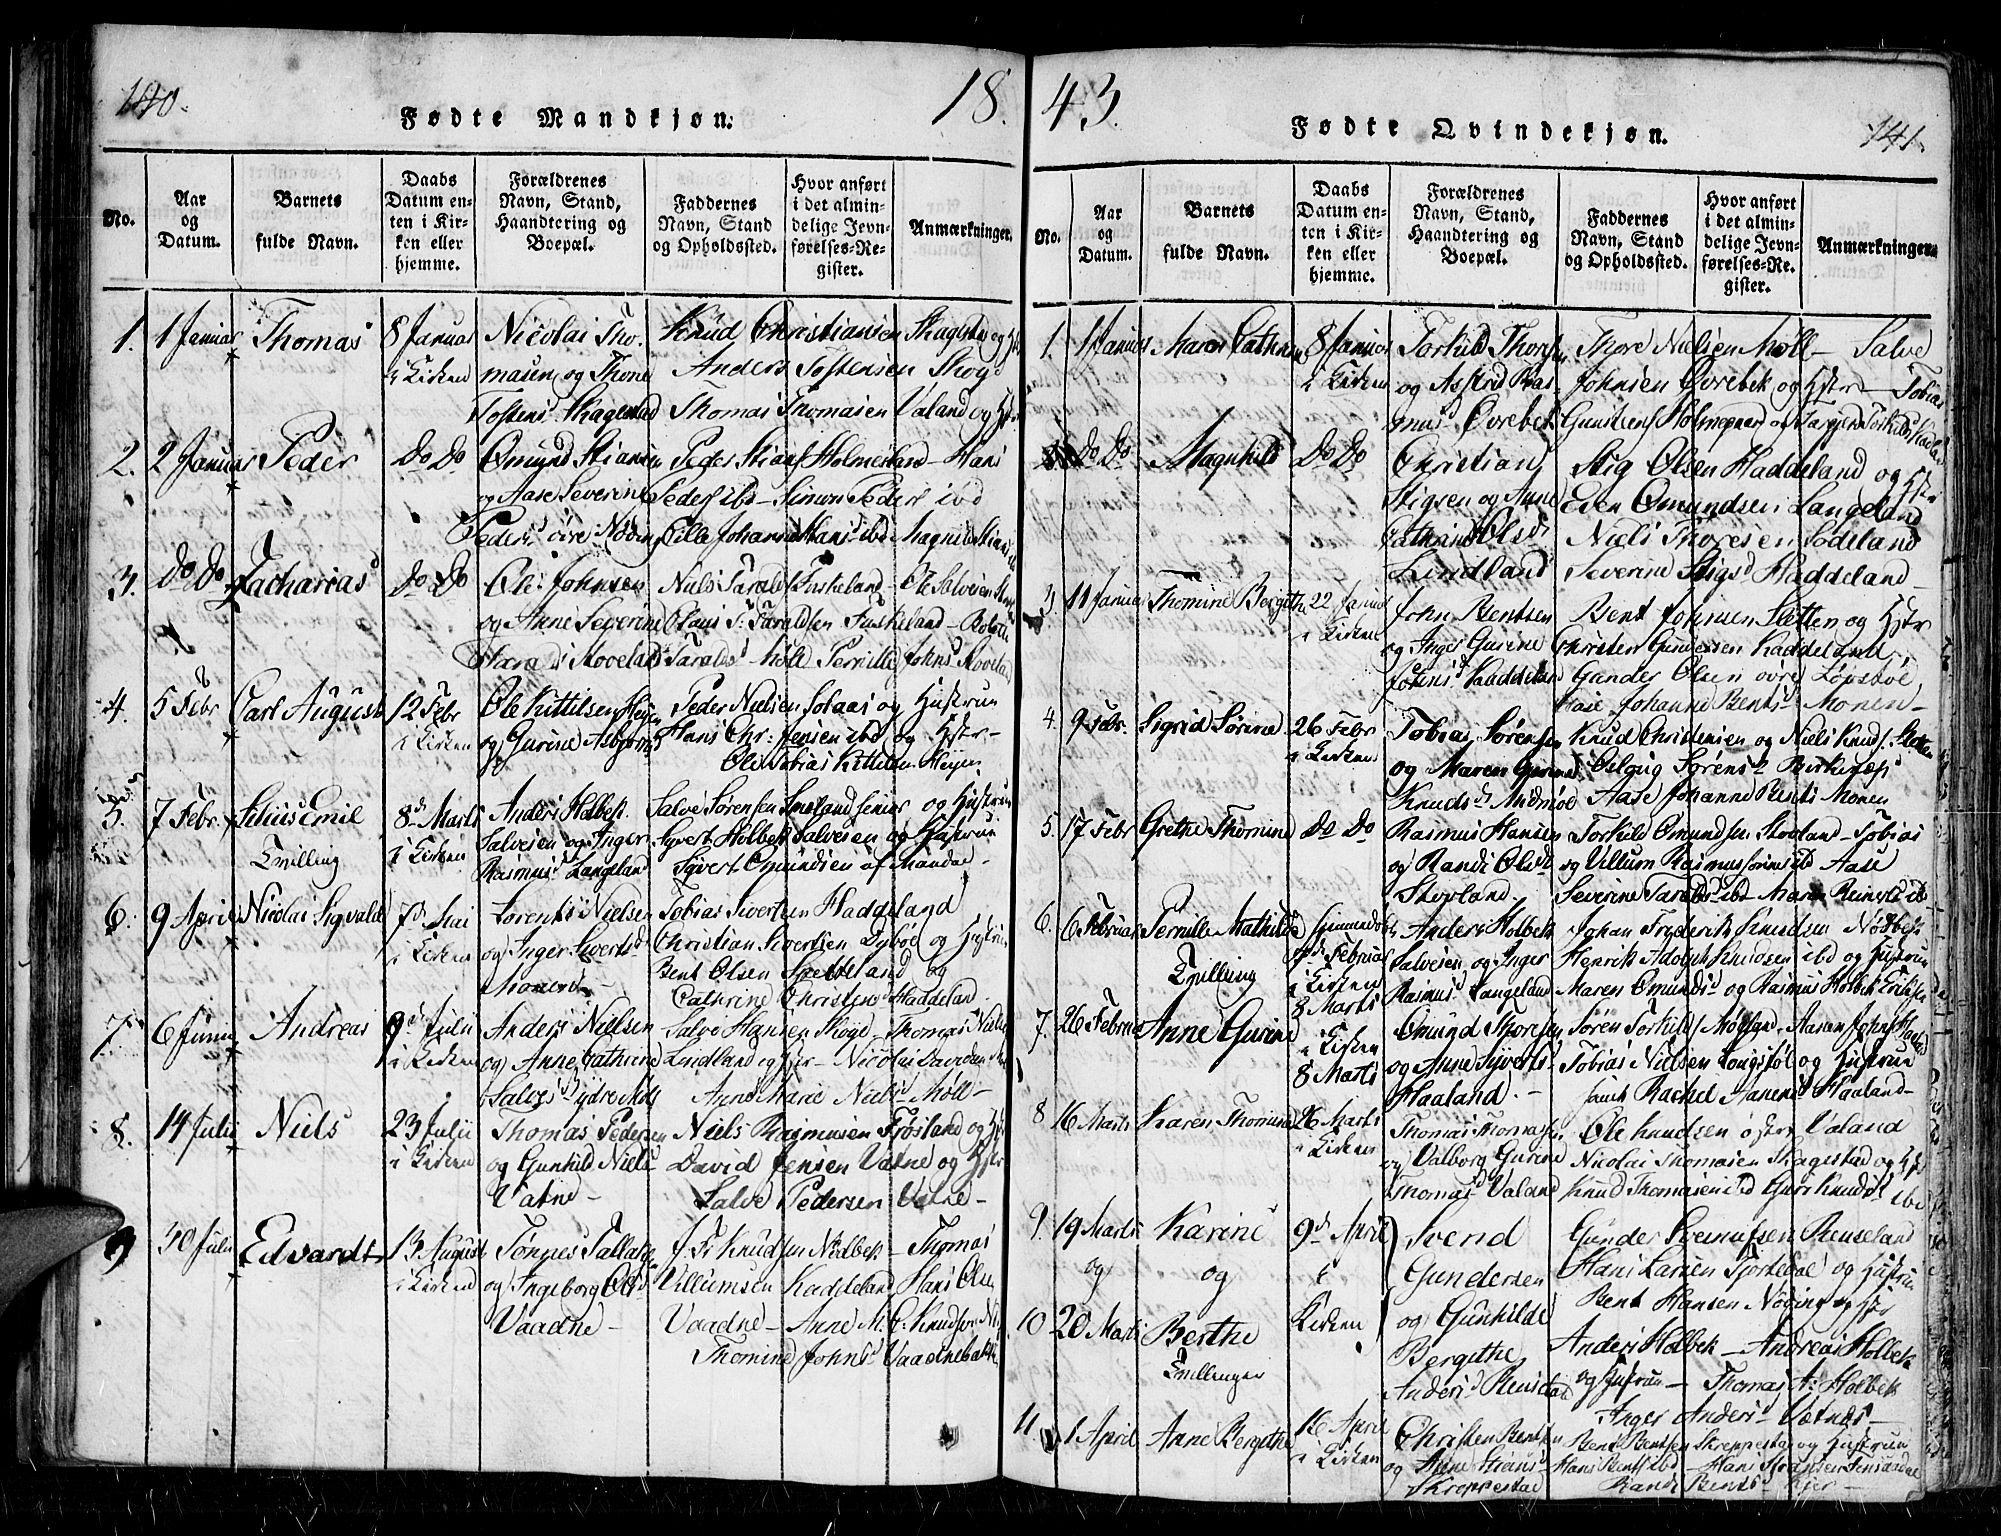 140.
18
Fødte Mandkjøn.
No.
Aar og Datum.
Barnets fulde Navn.
Daabs Datum enten i Kirken eller hjemme.
Forældrenes Navn, Stand, Haandtering og Boepæl.
Faddernes Navn, Stand og Opholdssted.
Hvor anført i det almindelige Jevnførelses-Register.
Anmærkninger.
1. 1 Januar Thomas 8 Januar Nicolai Tho- Knud Christiansen Skagestad og Hstr
i Kirken masen og Thone Anders Tostensen Skog
Tostens Skagestad Thomas Thomasen Valand og Hstr
2. 2 Januar Peder Do Do Omund Stiansen Peder Stians Holmesland - Hans
og Aase Severine Peders ibd - Simon Peders ibd
Peders øvre Nøding Cille Johanne Hans ibd Magnild
3. Do Do Zacharias Do Do Ole Johnsen Niels Tarald Fuskeland - Ole Salvesen
og Anne Severine Claus T. Taraldsen Fuskeland
Stoveland Taralds Möll Pernille Johns Stoveland
4. 5 Febr Carl August 12 Febr Ole Kittilsen Heyen Peder Nielsen Solaas og Hustrue
i Kirken og Gurine Asbjorns Hans Chr: Jensen ibd og Hstr -
Ole Tobias Kittelsen Heyen
5. 7 Febr. Julius Emil 8de Marts Anders Holbek Salve Sørensen Smeland senior og Hustrue
Tvilling i Kirken Salvesen og Inger Syvert Holbek Salvesen og Hustrue
Rasmus Langeland Syvert Omundsen af Mandal -
6. 9 April Nicolai Sigvald 7de Mai Lorents Nielsen Tobias Sivertsen Haddeland
i Kirken og Inger Siverts Christian Sivertsen Dybøe og Hustrue
Monen - Bent Olsen Spetteland og
Cathrine Christens Haddeland.
7. 6 Juni Andreas 9de Julii Anders Nielsen Salve Hansen Skoge - Thomas Niels
i Kirken og Anne Cathrine Lindland og Hstr - Nicolai
Salves Ydre Anne Marie Niels Möll -
8. 14 Julii Niels 23 Julii Thomas Pedersen Niels Rasmusen Frøsland og Hstr
i Kirken og Gunhild Niels David Jensen Vatne og Hstr
Vatne - Salve Pedersen Vatne -
9 30 Julii Edvardt 13 August Tønnes Tallaks J. Fr Knudsen Nødbek - Thomas
i Kirken og Ingeborg Ols Villumsen Haddeland Hans Olsen
Vaadne - Vaadne - Anne M. C. Knudsen
Thomine Johns Vaadnebakk
43.
141.
Fødte Qvindekjøn.
No.
Aar og Datum.
Barnets fulde Navn.
Daabs Datum enten i Kirken eller hjemme.
Forældrenes Navn, Stand, Haandtering og Boepæl.
Faddernes Navn, Stand og Opholdssted.
Hvor anført i det almindelige Jevnførelses-Register.
Anmærkninger.
1. 1 Januar Maren Cathrine 8 Januar Torkild Thoresen Thore Nielsen Möll - Salve
i Kirken og Astrid Ras- Johnsen Øvrebek og Hstr - Tobias
mus Øvrebek Guntens Holmegaar og
Do Do Magnhild Do Do Christian Stig Olsen Haddeland og Hstr
Stigsen og Anne Even Omundsen Langeland
Cathrine Olsd Niels Thoresen Sodeland
Lindland Severine Stigsd Haddeland -
3 11 Januar Thomine Bergithe 22 Januar John Bentsen Bent Johnsen Sletten og Hstr
i Kirken og Inger Gurine Christen Gundersen Haddeland
Johns Haddeland Gunder Olsen øvre Løpstøl
Aase Johanne Bents Monen -
4. 9 Febr. Sigrid Sørine 26 Febr Tobias Sørensen Knud Christensen og Niels Knuds
i Kirken og Maren Gurine Oslaug Sørens Birkenes
Knuds Midbøe Aase Johanne Bents Monen
5. 17 Febr Grethe Thomine Do Do Rasmus Hansen Torkild Omundsen Stooland - Tobias
og Randi Olsd og Villum Rasmus ibd Aase
Severine Taralds ibd Maren Reiners ibd
6. 6 Februar Pernille Mathilde Hjemmedøbt Anders Holbek Johan Fryderik Knudsen Nødbek
Tvilling Februar Salvesen og Inger Henrik Adolph Knudsen ibd og Hustrue
i Kirken 8 Marts Rasmus Langeland Maren Omunds og Rasmus Holbek
7. 26 Febr Anne Gurine i Kirken Omund Thoresen Søren Torkilds Møgland - Aanen Johns
8 Marts og Anne Syverts Tobias Nielsen Langstøl og Hustrue
Haaland. - samt Rachel Hanens Haaland -
8 16 Marts Karen Thomine 26 Marts Thomas Thomassen Ole Knudsen øster Valand
i Kirken og Valborg Gurine Nicolai Thomasen Skagestad og Hstr
Thomas Valand Knud Thomasen ibd Guri Knuds ibd
9. 19 Marts Karine 9de April Svend Gunder Svenunsen Renseland
og og i Gundersen Hans Larsen Tjorteland og Hustrue
10 20 Marts Berthe Kirken og Gunhilde Bent Hansen Nøding og Hstr
Tvillinger Bergithe Anders Holbek - Andreas Holbek
Anders og Hustrue - Thomas A: Holbek
Inger Anders Vatnes -
11. 1 April Anne Bergithe 16 April Christen Bentsen Bent Bentsen Skreppestad og Hustrue
i Kirken og Anne Hans Hans Bents ibd - Hans
Skreppestad Randi Bents